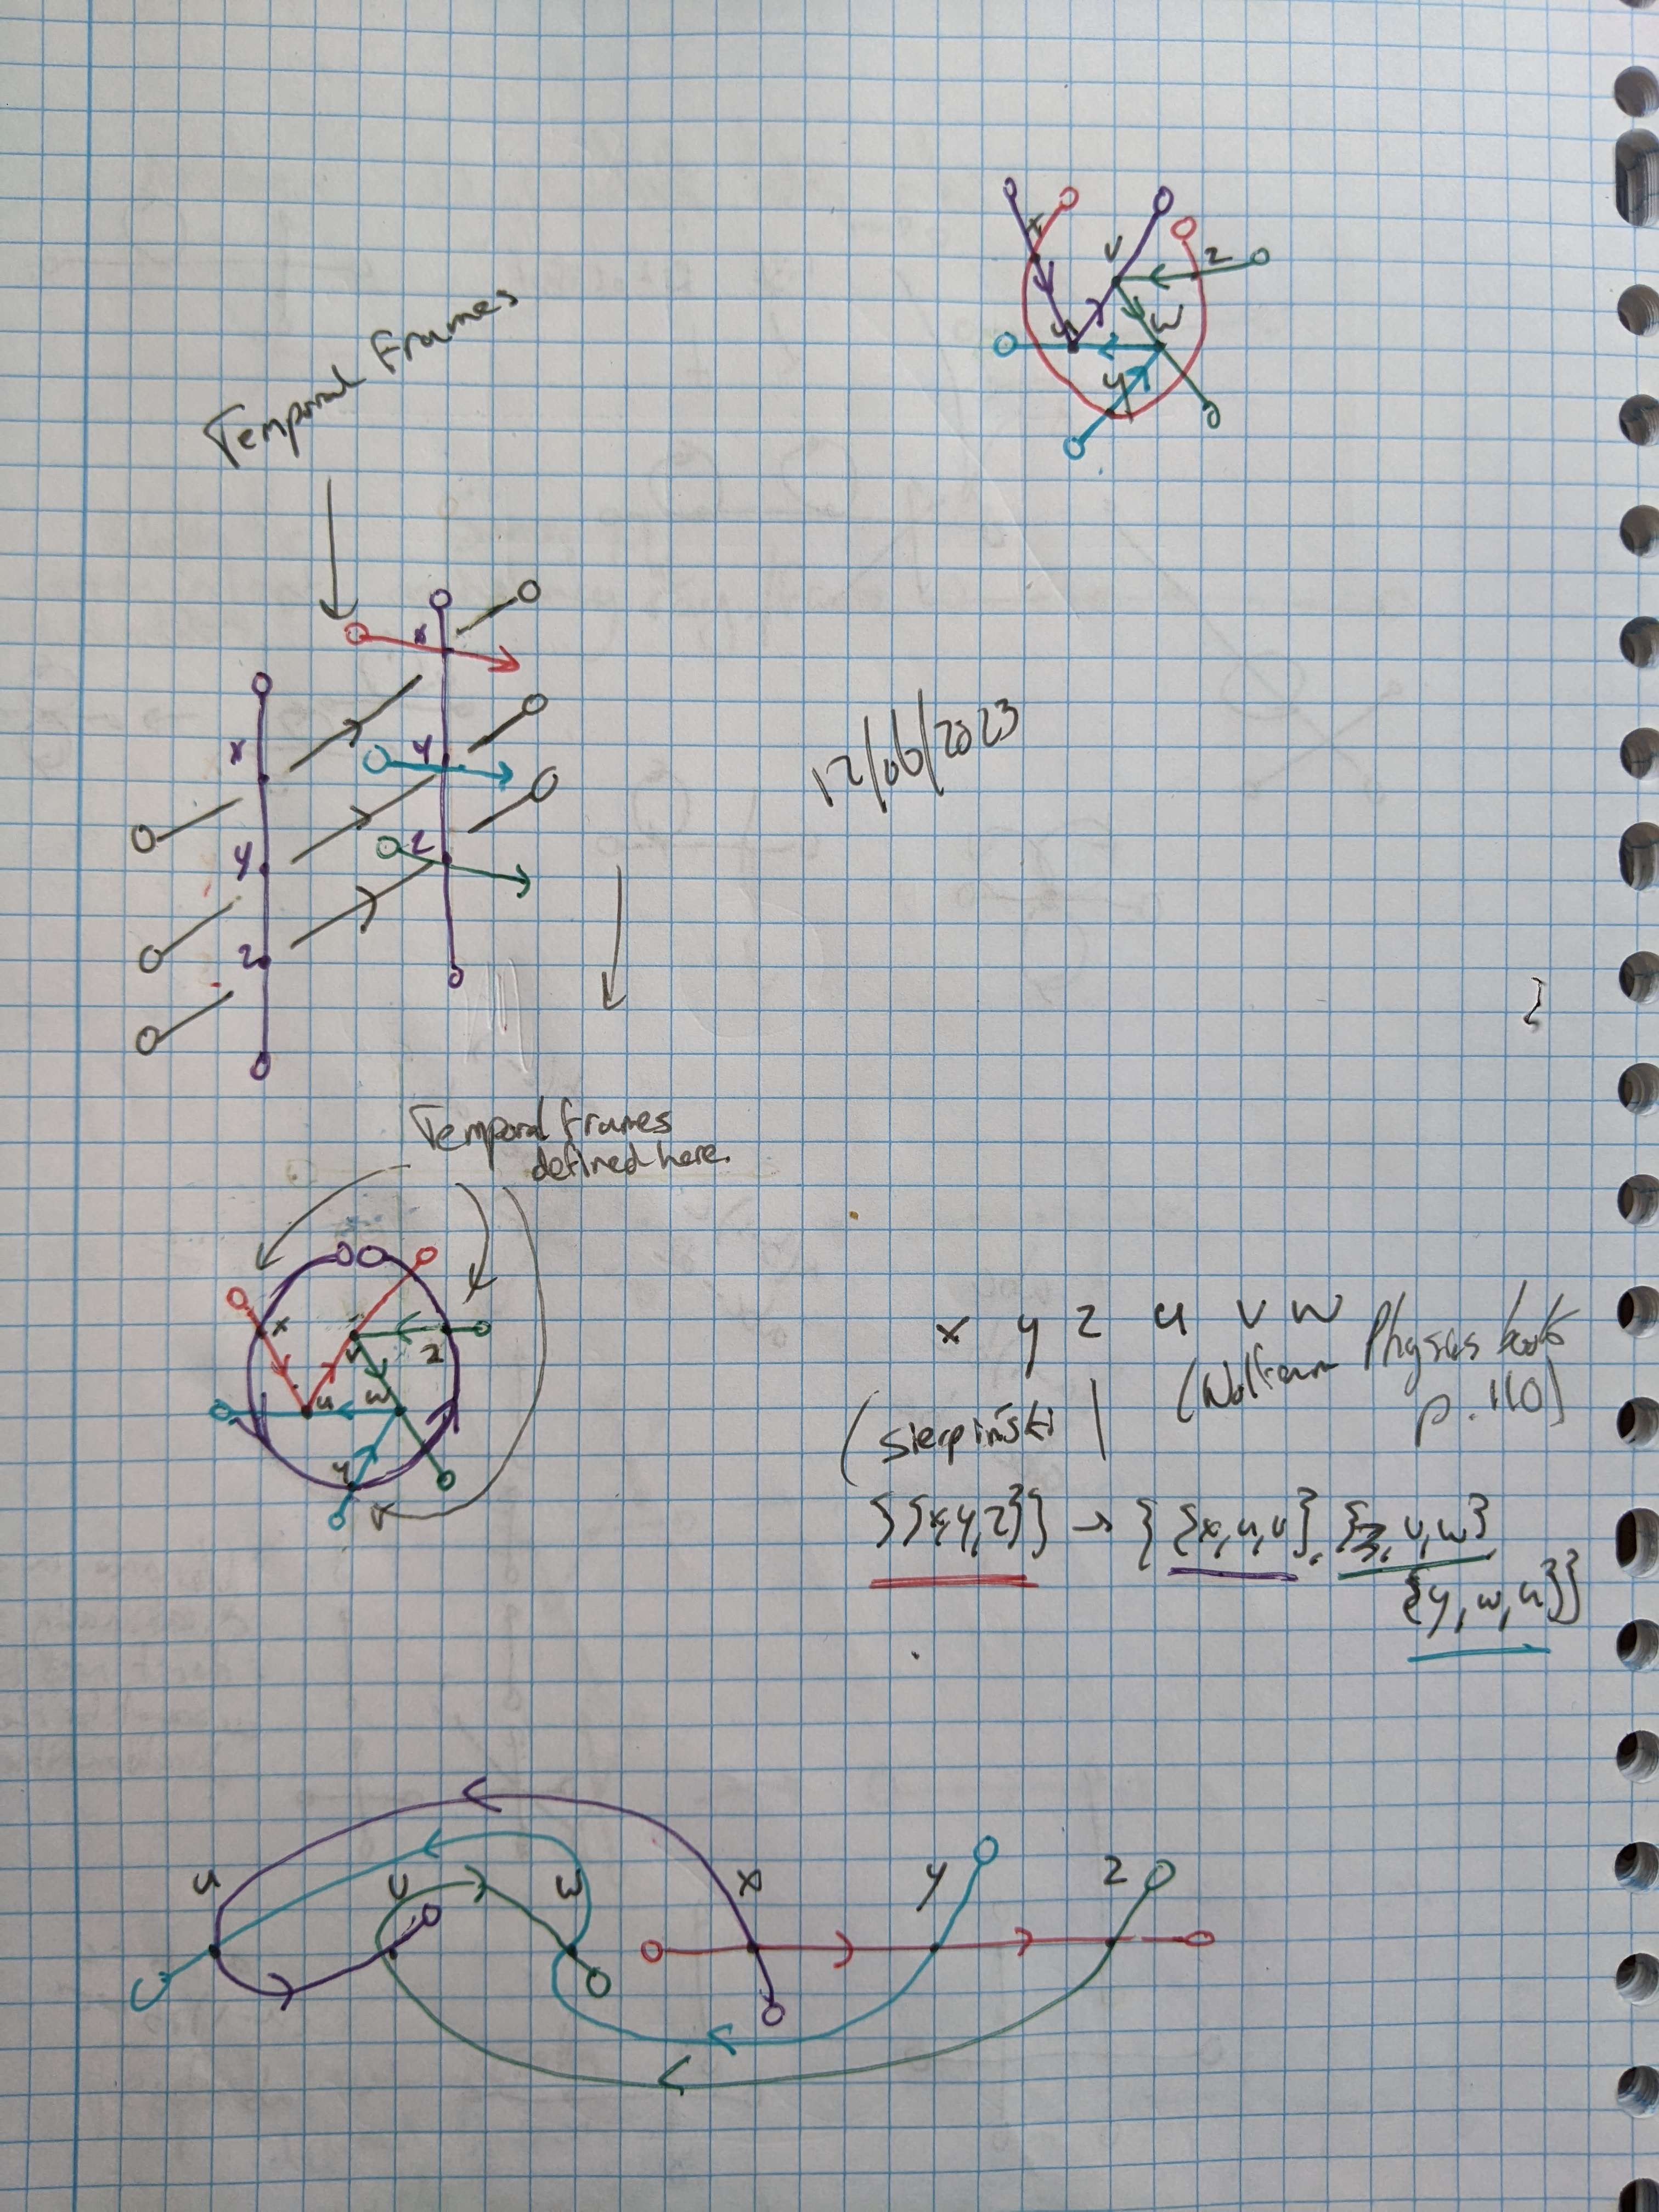 x v z
u w
y
Temporal Frames
x
x y
y z
z
12/06/2023
Temporal frames
defined here.
x v z
u w
y
x y z u v w
(Wolfram Physics book
p. 110)
(Sierpiński)
{{x,y,z}} → {{x,u,v}, {z,v,w}
{y,w,u}}
u v w x y z